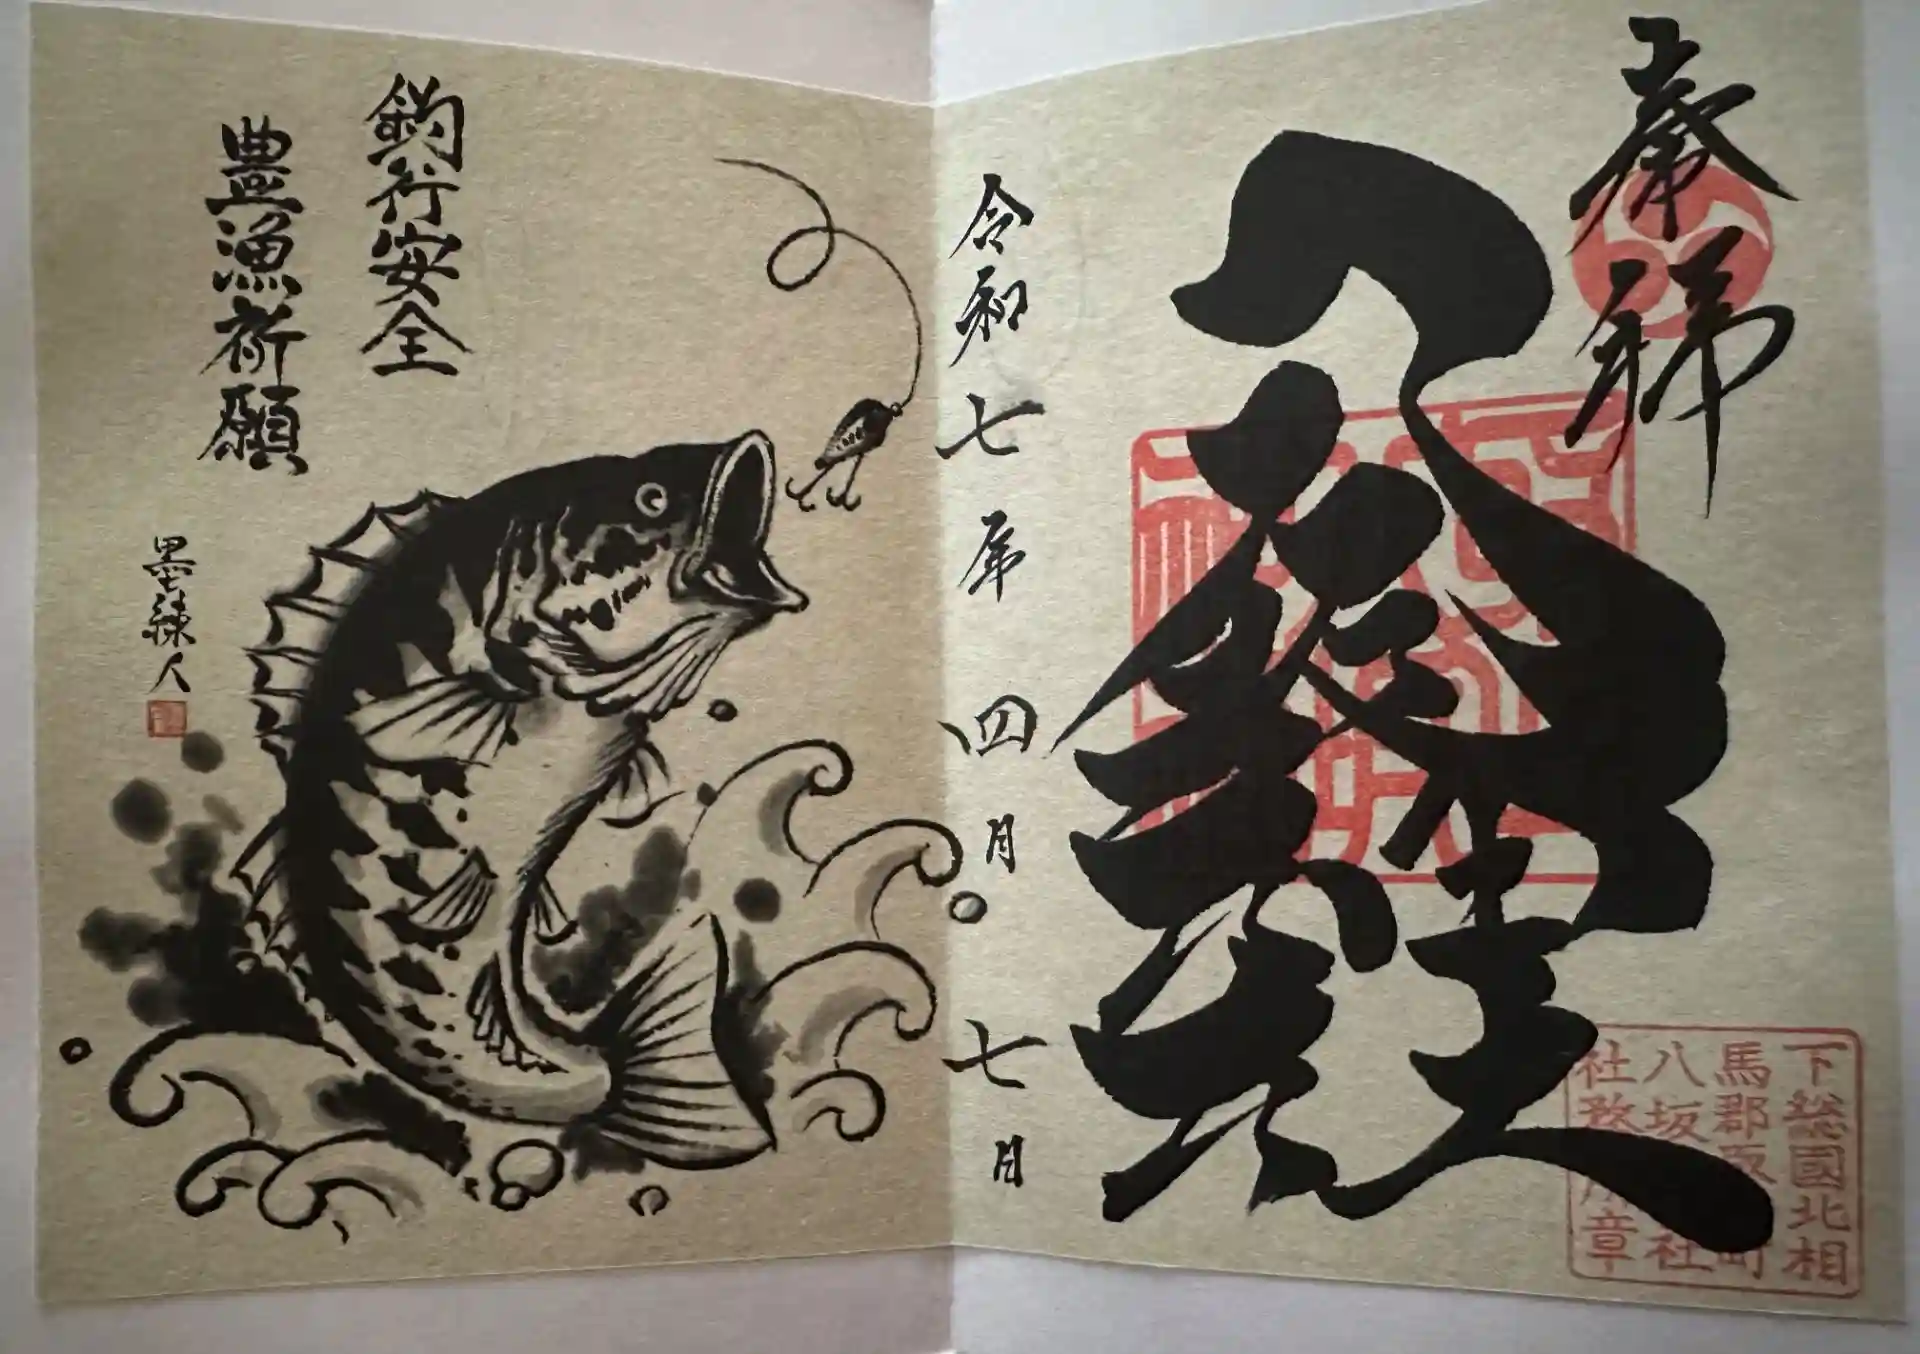 奉拝
八坂神社
令和七年四月七日
釣行安全
豊漁祈願
下総國北相
馬郡取手町
八坂神社
社務所章